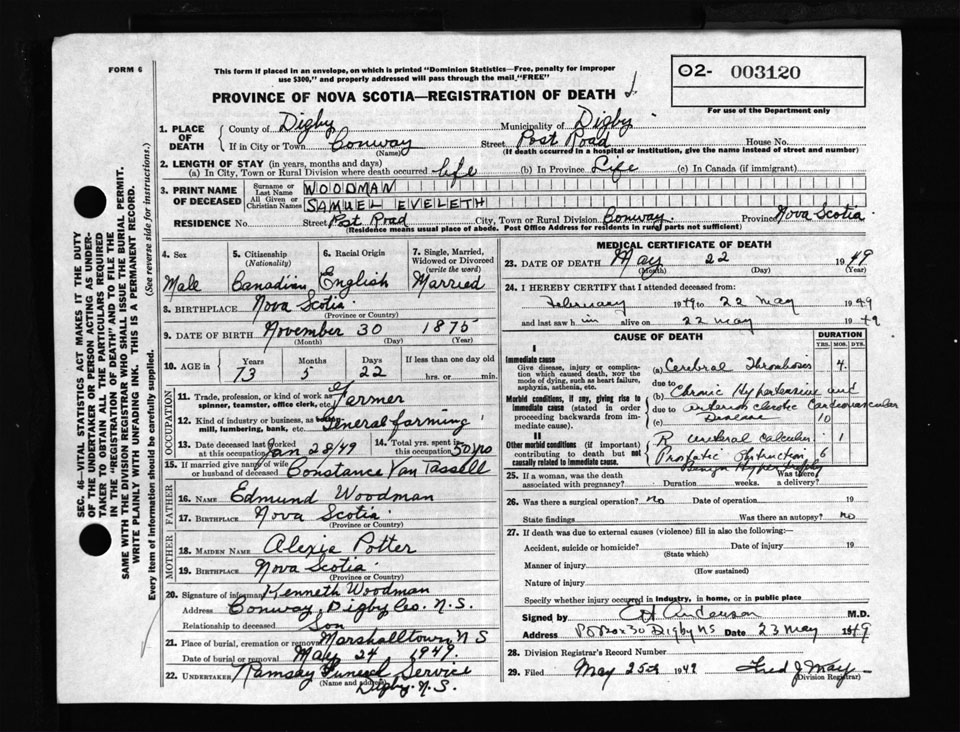 FORM 6
This form if placed in an envelope, on which is printed "Dominion Statistics—Free, penalty for improper
use $300," and properly addressed will pass through the mail "FREE"
O2- 003120
For use of the Department only
PROVINCE OF NOVA SCOTIA—REGISTRATION OF DEATH
1. PLACE OF DEATH County of Digby Municipality of Digby
If in City or Town Conway (Name) Street Post Road House No.
(If death occurred in a hospital or institution, give the name instead of street and number)
2. LENGTH OF STAY (in years, months and days)
(a) In City, Town or Rural Division where death occurred life (b) In Province Life (c) In Canada (if immigrant)
3. PRINT NAME OF DECEASED Surname or Last Name WOODMAN
All Given or Christian Names SAMUEL EVELETH
RESIDENCE No. Street Post Road City, Town or Rural Division Conway Province Nova Scotia
(Residence means usual place of abode. Post Office Address for residents in rural parts not sufficient)
4. Sex Male
5. Citizenship (Nationality) Canadian
6. Racial Origin English
7. Single, Married, Widowed or Divorced (write the word) Married
8. BIRTHPLACE Nova Scotia (Province or Country)
9. DATE OF BIRTH November 30 1875
(Month) (Day) (Year)
10. AGE in Years Months Days If less than one day old
73 5 22 hrs. or min.
OCCUPATION
11. Trade, profession, or kind of work as spinner, teamster, office clerk, etc. Farmer
12. Kind of industry or business, as mill, lumbering, bank, etc. General farming
13. Date deceased last worked at this occupation Jan 28/49 14. Total yrs. spent in this occupation 50 yrs
15. If married give name of wife or husband of deceased Constance Van Tassell
FATHER
16. NAME Edmund Woodman
17. BIRTHPLACE Nova Scotia (Province or Country)
MOTHER
18. MAIDEN NAME Alexie Potter
19. BIRTHPLACE Nova Scotia (Province or Country)
20. Signature of informant Kenneth Woodman
Address Conway, Digby Co. N.S.
Relationship to deceased Son
21. Place of burial, cremation or removal Marshalltown N S
Date of burial or removal May 24 1949.
22. UNDERTAKER Ramsay Funeral Service
(Name and address) Digby. N.S.
MEDICAL CERTIFICATE OF DEATH
23. DATE OF DEATH May 22 1949
(Month) (Day) (Year)
24. I HEREBY CERTIFY that I attended deceased from:
February 1949 to 22 May 1949
and last saw him alive on 22 May 1949
CAUSE OF DEATH DURATION
YRS. MOS. DYS.
I
Immediate cause
Give disease, injury or complication which caused death, not the mode of dying, such as heart failure, asphyxia, asthenia, etc.
(a) Cerebral Thrombosis 4
due to
Morbid conditions, if any, giving rise to immediate cause (stated in order proceeding backwards from immediate cause).
(b) Chronic Hypertensive and
due to arteriosclerotic Cardiovascular
(c) Disease 10
II
Other morbid conditions (if important) contributing to death but not causally related to immediate cause.
R calculus 1
Prostatic Obstruction 6
Benign Hypertrophy
25. If a woman, was the death associated with pregnancy? Duration weeks. Was there a delivery?
26. Was there a surgical operation? no Date of operation 19
State findings Was there an autopsy? no
27. If death was due to external causes (violence) fill in also the following:
Accident, suicide or homicide? Date of injury 19
(State which)
Manner of injury
(How sustained)
Nature of injury
Specify whether injury occurred in industry, in home, or in public place
Signed by Anderson M.D.
Address P O Box 30 Digby NS Date 23 May 1949
28. Division Registrar's Record Number
29. Filed May 25th 1949 Fred J May
(Division Registrar)
SEC. 46—VITAL STATISTICS ACT MAKES IT THE DUTY
OF THE UNDERTAKER OR PERSON ACTING AS UNDERTAKER
TO OBTAIN ALL THE PARTICULARS REQUIRED
IN THE "REGISTRATION OF DEATH" AND TO FILE THE
SAME WITH THE DIVISION REGISTRAR WHO SHALL ISSUE THE BURIAL PERMIT.
WRITE PLAINLY WITH UNFADING INK. THIS IS A PERMANENT RECORD.
Every item of information should be carefully supplied. (See reverse side for instructions.)